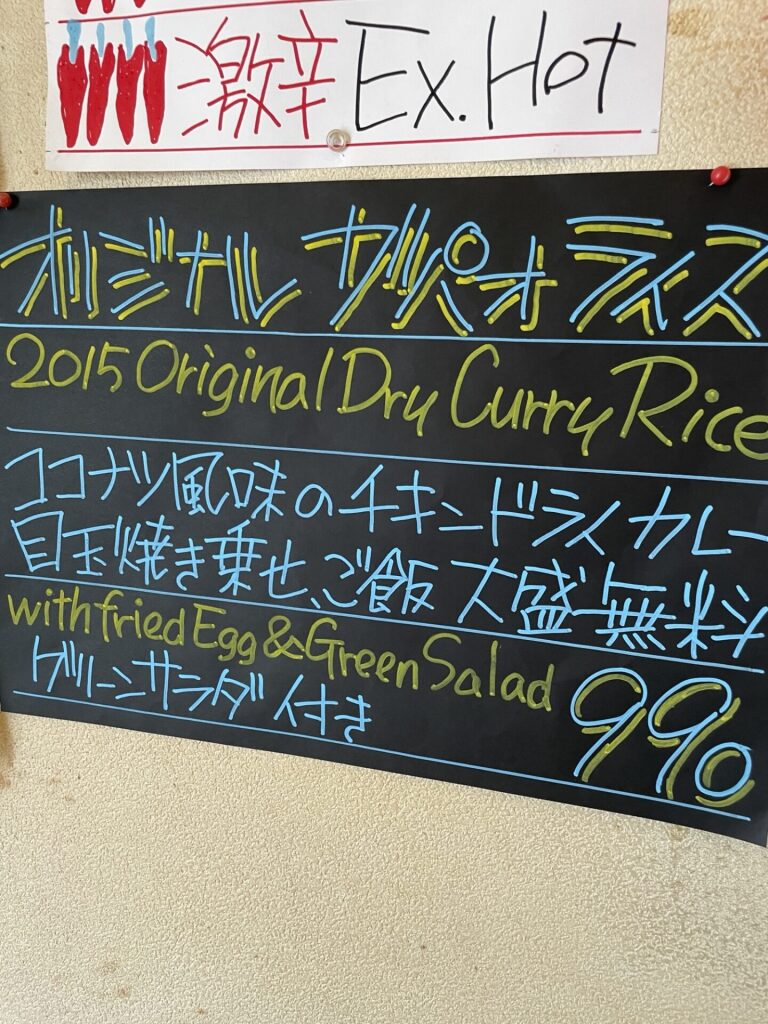 激辛 Ex. Hot
オリジナル ガッパオ ライス
2015 Original Dry Curry Rice
ココナツ風味のチキンドライカレー
目玉焼き乗せ、ご飯 大盛無料
with fried Egg & Green Salad
グリーンサラダ付き
990